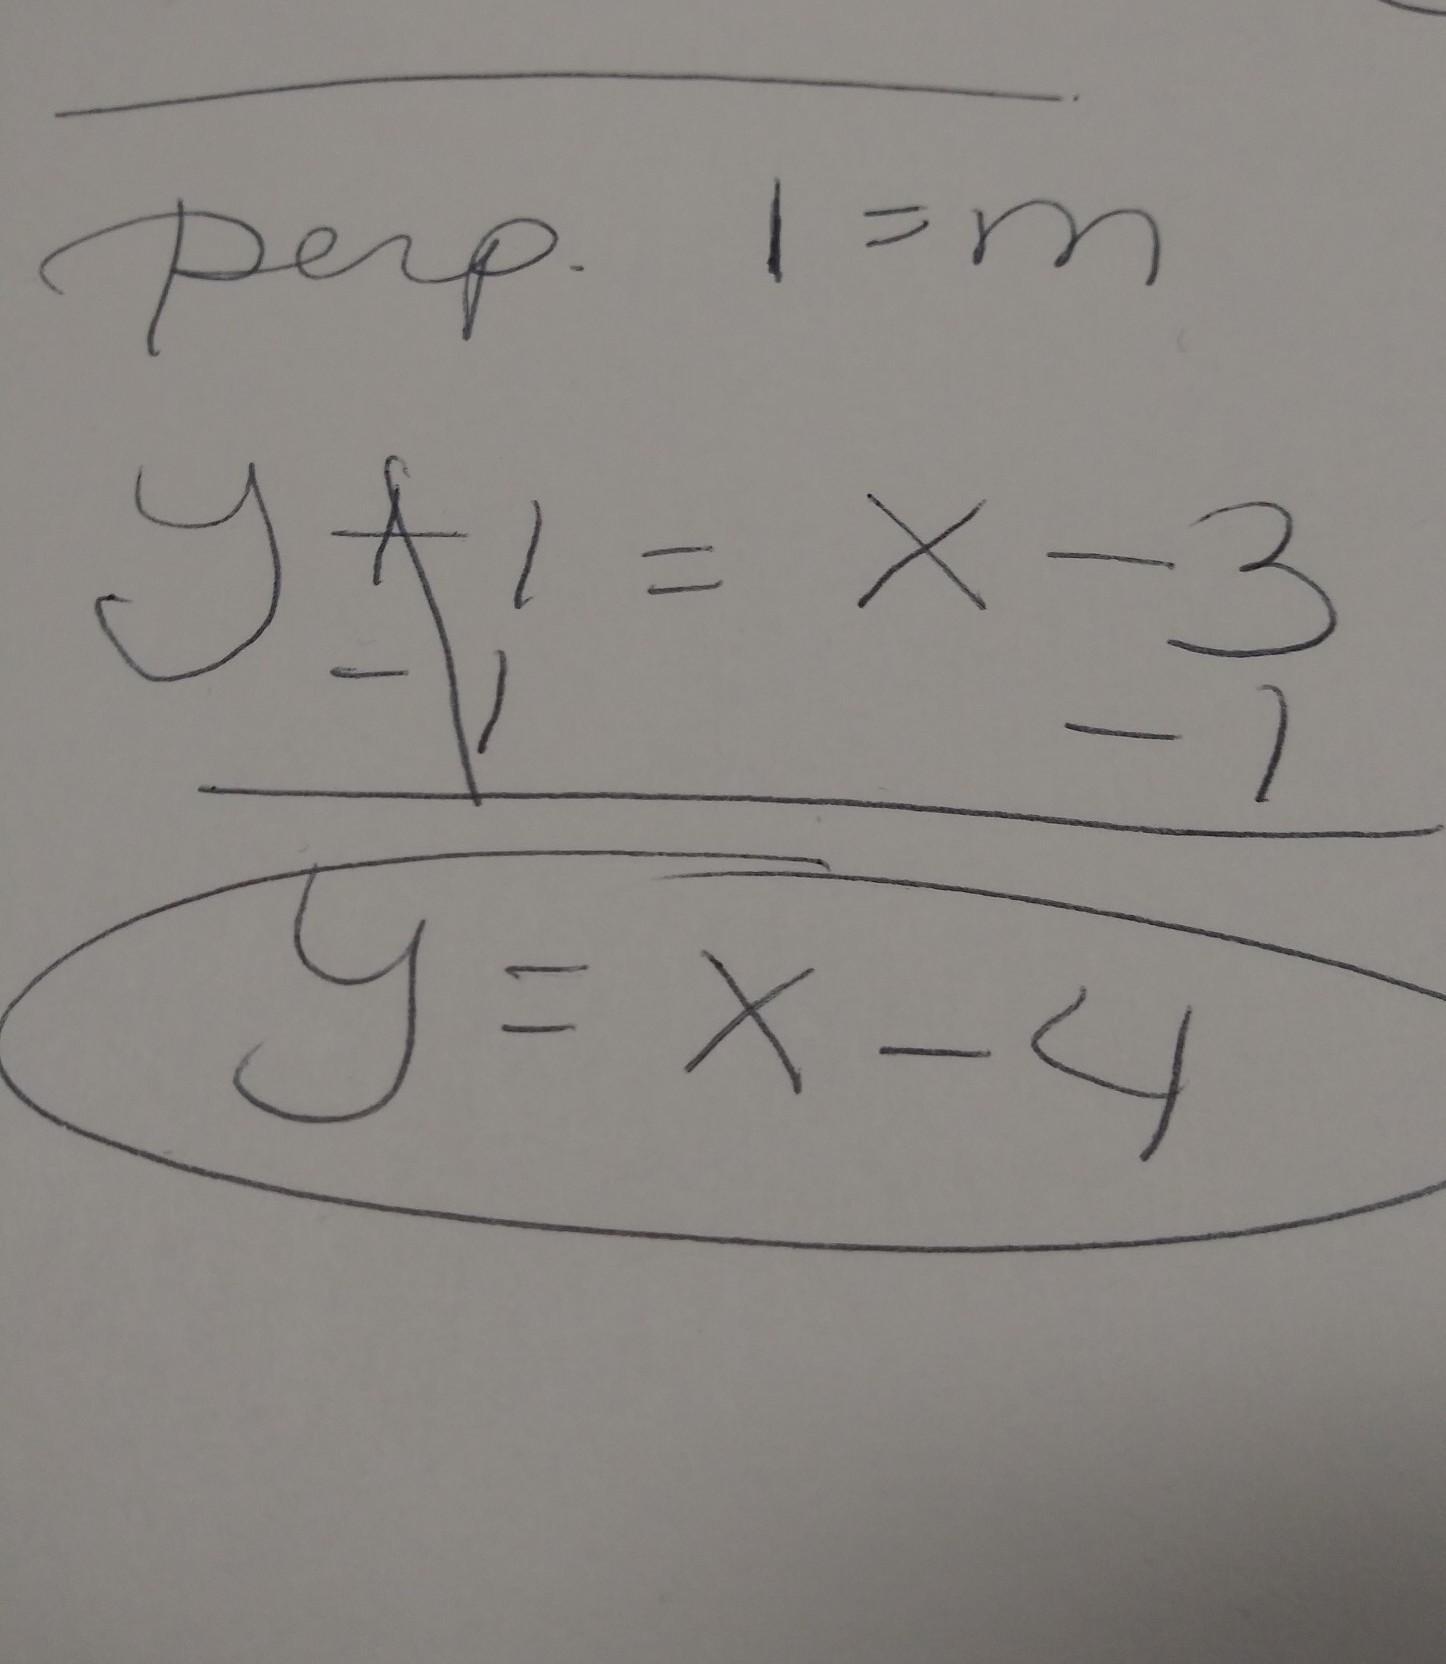 perp. 1 = m
y + 1 = x - 3
- 1 - 1
y = x - 4